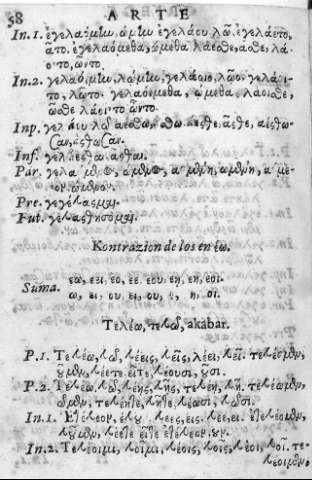 58 ARTE
In. 1. ἐγελαόμην, ώμην ἐγελάου λῶ. ἐγελάετο,
ᾶτο. ἐγελαόμεθα, ώμεθα λάεσθε, ᾶσθε, λά-
οντο, ῶντο.
In. 2. γελαοίμην, λῴμην, γελάοιο, λῷο. γελάοι-
το, λῷτο. γελαοίμεθα, ώμεθα, λάοισθε,
ῷσθε λάοιντο ῷντο.
Inp. γελάου λῶ αέσθω, άσθω ᾶσθε, άσθω-
σαν.
Inf. γελάεσθαι. ᾶσθαι.
Par. γελαόμενος, ώμενος, μένη, ωμένη,
ον. ώμενον.
Pre. γεγέλασμαι.
Fut. γελασθήσομαι.
Kontrazion de los en έω.
Suma. εω, ει. εο, εε. εου. εη, εοι.
ω, ει, ου ει, ου, η, οι.
Τελέω, τελῶ, akabar.
P. 1. Τελέω, λῶ, λέεις, λεῖς, λέει, λεῖ. τελέομεν,
οῦμεν, λέετε εῖτε, λέουσι, οῦσι.
P. 2. Τελέω. λῶ, λέῃς, λῇς, τελέῃ, λῇ. τελέωμεν,
ῶμεν, τελέητε, λῆτε, λέωσι, λῶσι.
In. 1. Ἐτέλεον, λουν. λεες, εις. λεε, ει. ἐτελέομεν,
λοῦμεν, λέετε εῖτε ἐτέλεον. ουν.
In. 2. Τελέοιμι, λοῖμι, λέοις, λοῖς, λέοι, λοῖ. τε-
λέοιμεν,